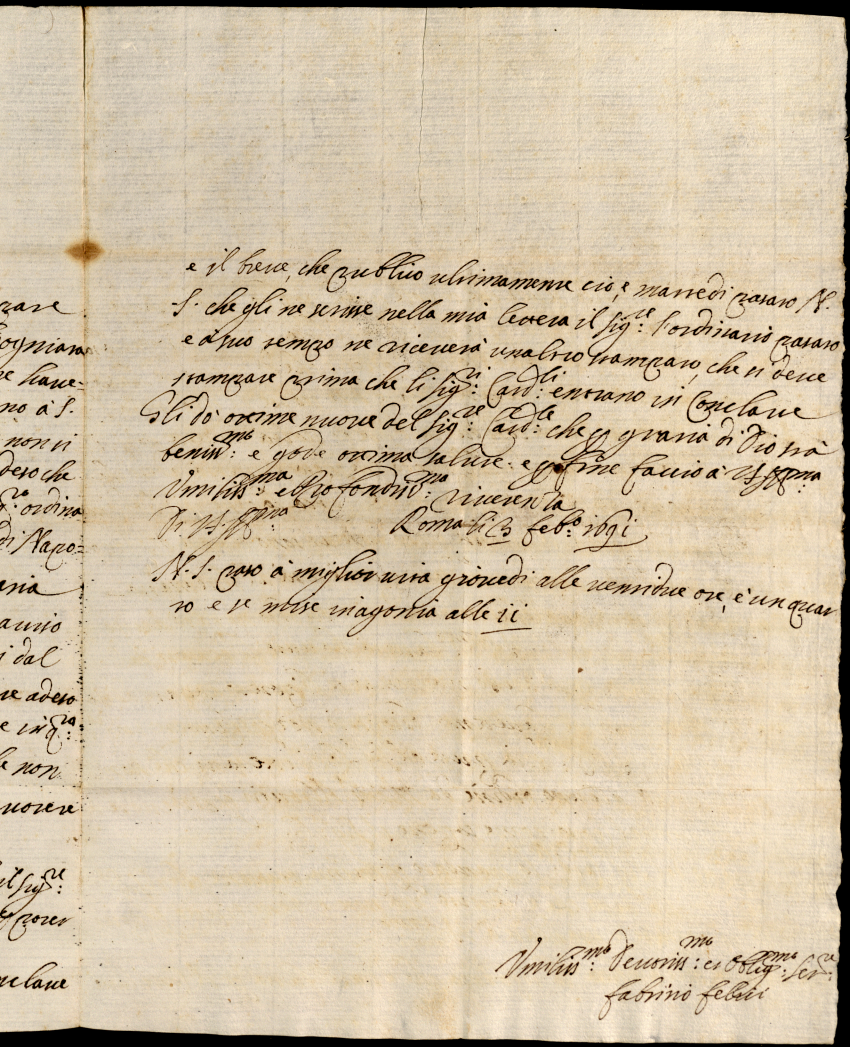 pare
ogniara
e haue-
no à S.
non si
deso che
ordina
di Napo=
aria
auuiso
i dal
re adeso
e in q.to:
le non
uolere
il sig.re:
poter
nclaue
e il breue, che publicò ultimamente cioe, martedi pasato N.
S. che gli ne scrisse nella mia lettera il sig.re: l'ordinario pasato
e a suo tempo ne riceuerà un altro stampato, che si deue
stampare prima che li sig.ri: Card.li: entrano in Conclaue
Gli dò ottime nuoue del sig.re: Card.le: che per gratia di Dio stà
beniss.mo: e gode ottima salute. e per fine faccio à V.S. Ill.ma
Vmiliss.ma: e Profondiss.ma: riuerenza
Di V.S. Ill.ma Roma li 3 feb.o: 1691
N. S. paso à miglior uita giouedi alle uentidue ore, è un quar
to e se mise in agonia alle 11
Vmiliss.mo: Deuotiss.mo: et Oblig.mo: Ser.re:
Fabrino Febei